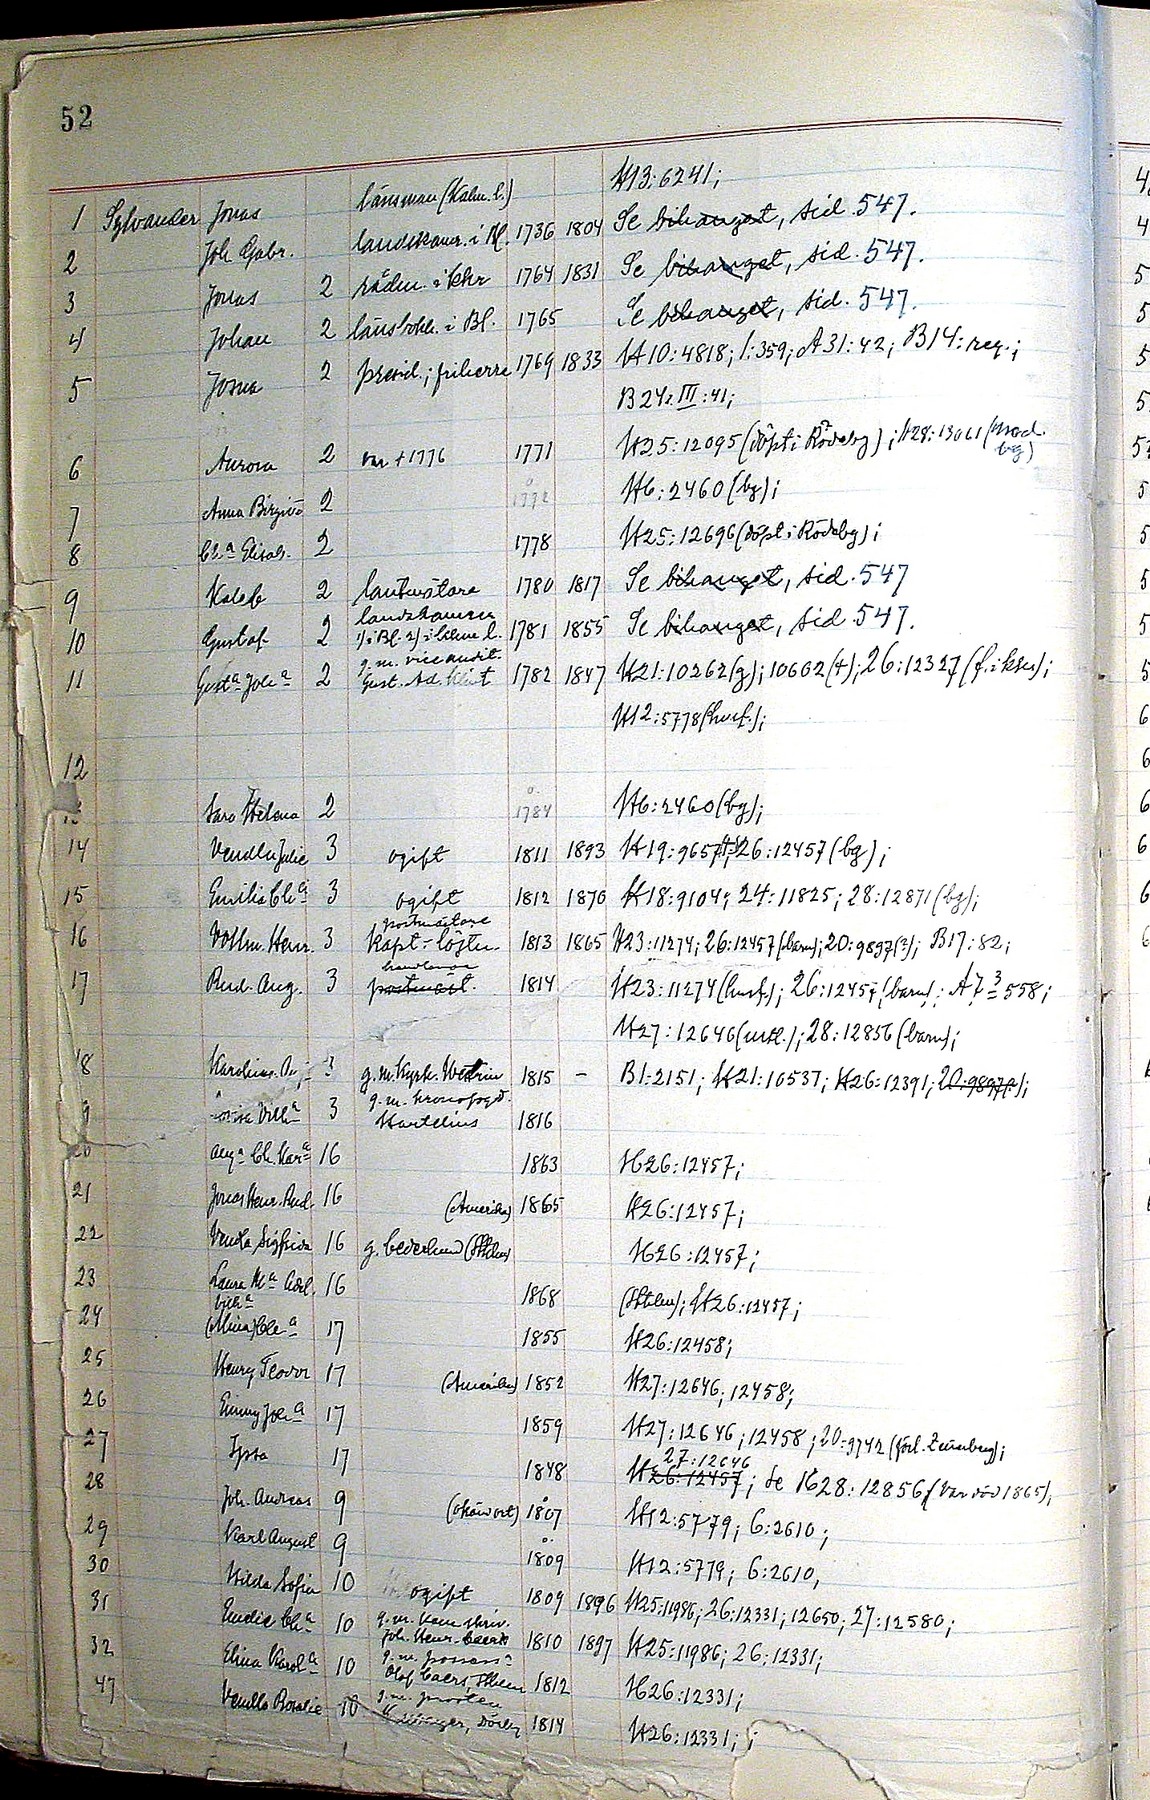 52
H13:6241;
1 Sylvander Jonas länsman (Kalm. l.)
2 Joh. Gabr. landskamr. i Bl. 1736 1804 Se bihanget, sid. 547.
3 Jonas 2 rådm. i Kkr 1764 1831 Se bihanget, sid. 547.
4 Johan 2 länsbokh. i Bl. 1765 Se bihanget, sid. 547.
5 Josua 2 presid.; friherre 1769 1833 H10:4818; 1:359; A31:42; B14: reg.;
B24: III:41;
6 Aurora 2 1771 H25:12095 (döpt i Rödeby); H28:13061
7 Anna Birgitta 2 H6:2460 (bg);
8 Cha Elisab. 2 1778 H25:12696 (döpt i Rödeby);
9 Kaleb 2 lantmätare 1780 1817 Se bihanget, sid. 547
10 Gustaf 2 landskamrer
1) i Bl. 2) i l. 1781 1855 Se bihanget, sid. 547.
11 Gusta Joha 2 g. m. viceaudit.
Gust. Ad. 1782 1847 H21:10262 (g); 10602 (†); 26:12327
H12:5778 (husf.);
12
Sara Helena 2 1784 H6:2460 (bg);
14 Vendla Julie 3 ogift 1811 1893 H19:9657; 26:12457 (bg);
15 Emilia Cha 3 ogift 1812 1870 H18:9104; 24:11825; 28:12871 (bg);
16 Vilhm. Henr. 3 postmästare
Kapt-löjtn. 1813 1865 H23:11274; 26:12457 (barn); 20:9897(?); B17:82;
17 Rud. Aug. 3 handlande
postmäst. 1814 H23:11274 (husf.); 26:12457 (barn); A7 3 558;
H27:12646 ; 28:12856 (barn);
18 Karolina 3 g. m. Kyrk. 1815 – B1:2151; H21:10537; H26:12391; 20:9897(?);
3 g. m. kronofogd.
Hartelius 1816
20 Auga Ch. Kara 16 1863 H26:12457;
21 Jonas Henr. Rud. 16 (Amerika) 1865 H26:12457;
22 Venda Sigfrida 16 g. Cederlund (Sthlm) H26:12457;
23 Laura Ma Adel.
Vilha 16 1868 (Sthlm); H26:12457;
24 (Mina) Cha 17 1855 H26:12458;
25 Henry Teodor 17 (Amerika) 1852 H27:12646; 12458;
26 Emmy Joha 17 1859 H27:12646; 12458; 20:9742
27 17 1848 27:12646
H26:12457; se H28:12856 (var död 1865);
28 Joh. Andreas 9 (okänd ort) 1807 H12:5779; 6:2610;
29 Karl August 9 1809 H12:5779; 6:2610;
30 Hilda Sofia 10 ogift 1809 1896 H25:11986; 26:12331; 12650; 27:12580;
31 Emelie Cha 10 g. m. kam. skriv.
Joh. Henr. 1810 1897 H25:11986; 26:12331;
32 Elina Karola 10 g. m.
Olof 1812 H26:12331;
47 Vendla Rosalie 10 g. m. prosten
1814 H26:12331;